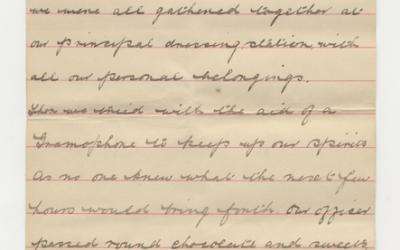 we were all gathered together at
our principal dressing station with
all our personal belongings.
Thor we tried with the aid of a
Gramophone to keep up our spirits
as no one knew what the next few
hours would bring forth. Our officer
passed round chocolate and sweets